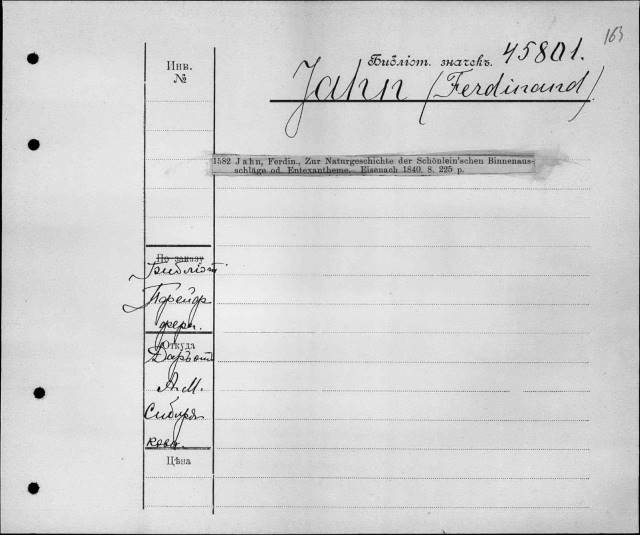 163
Инв.
№
Библіот. значекъ. 45801.
Jahn (Ferdinand)
1582 Jahn, Ferdin., Zur Naturgeschichte der Schönlein'schen Binnenaus-
schläge od. Entexantheme. Eisenach 1840. 8. 225 p.
По заказу
Библіот
Пфейф
фера.
Откуда
Даръ отъ
А. М.
Сибиря
кова.
Цѣна